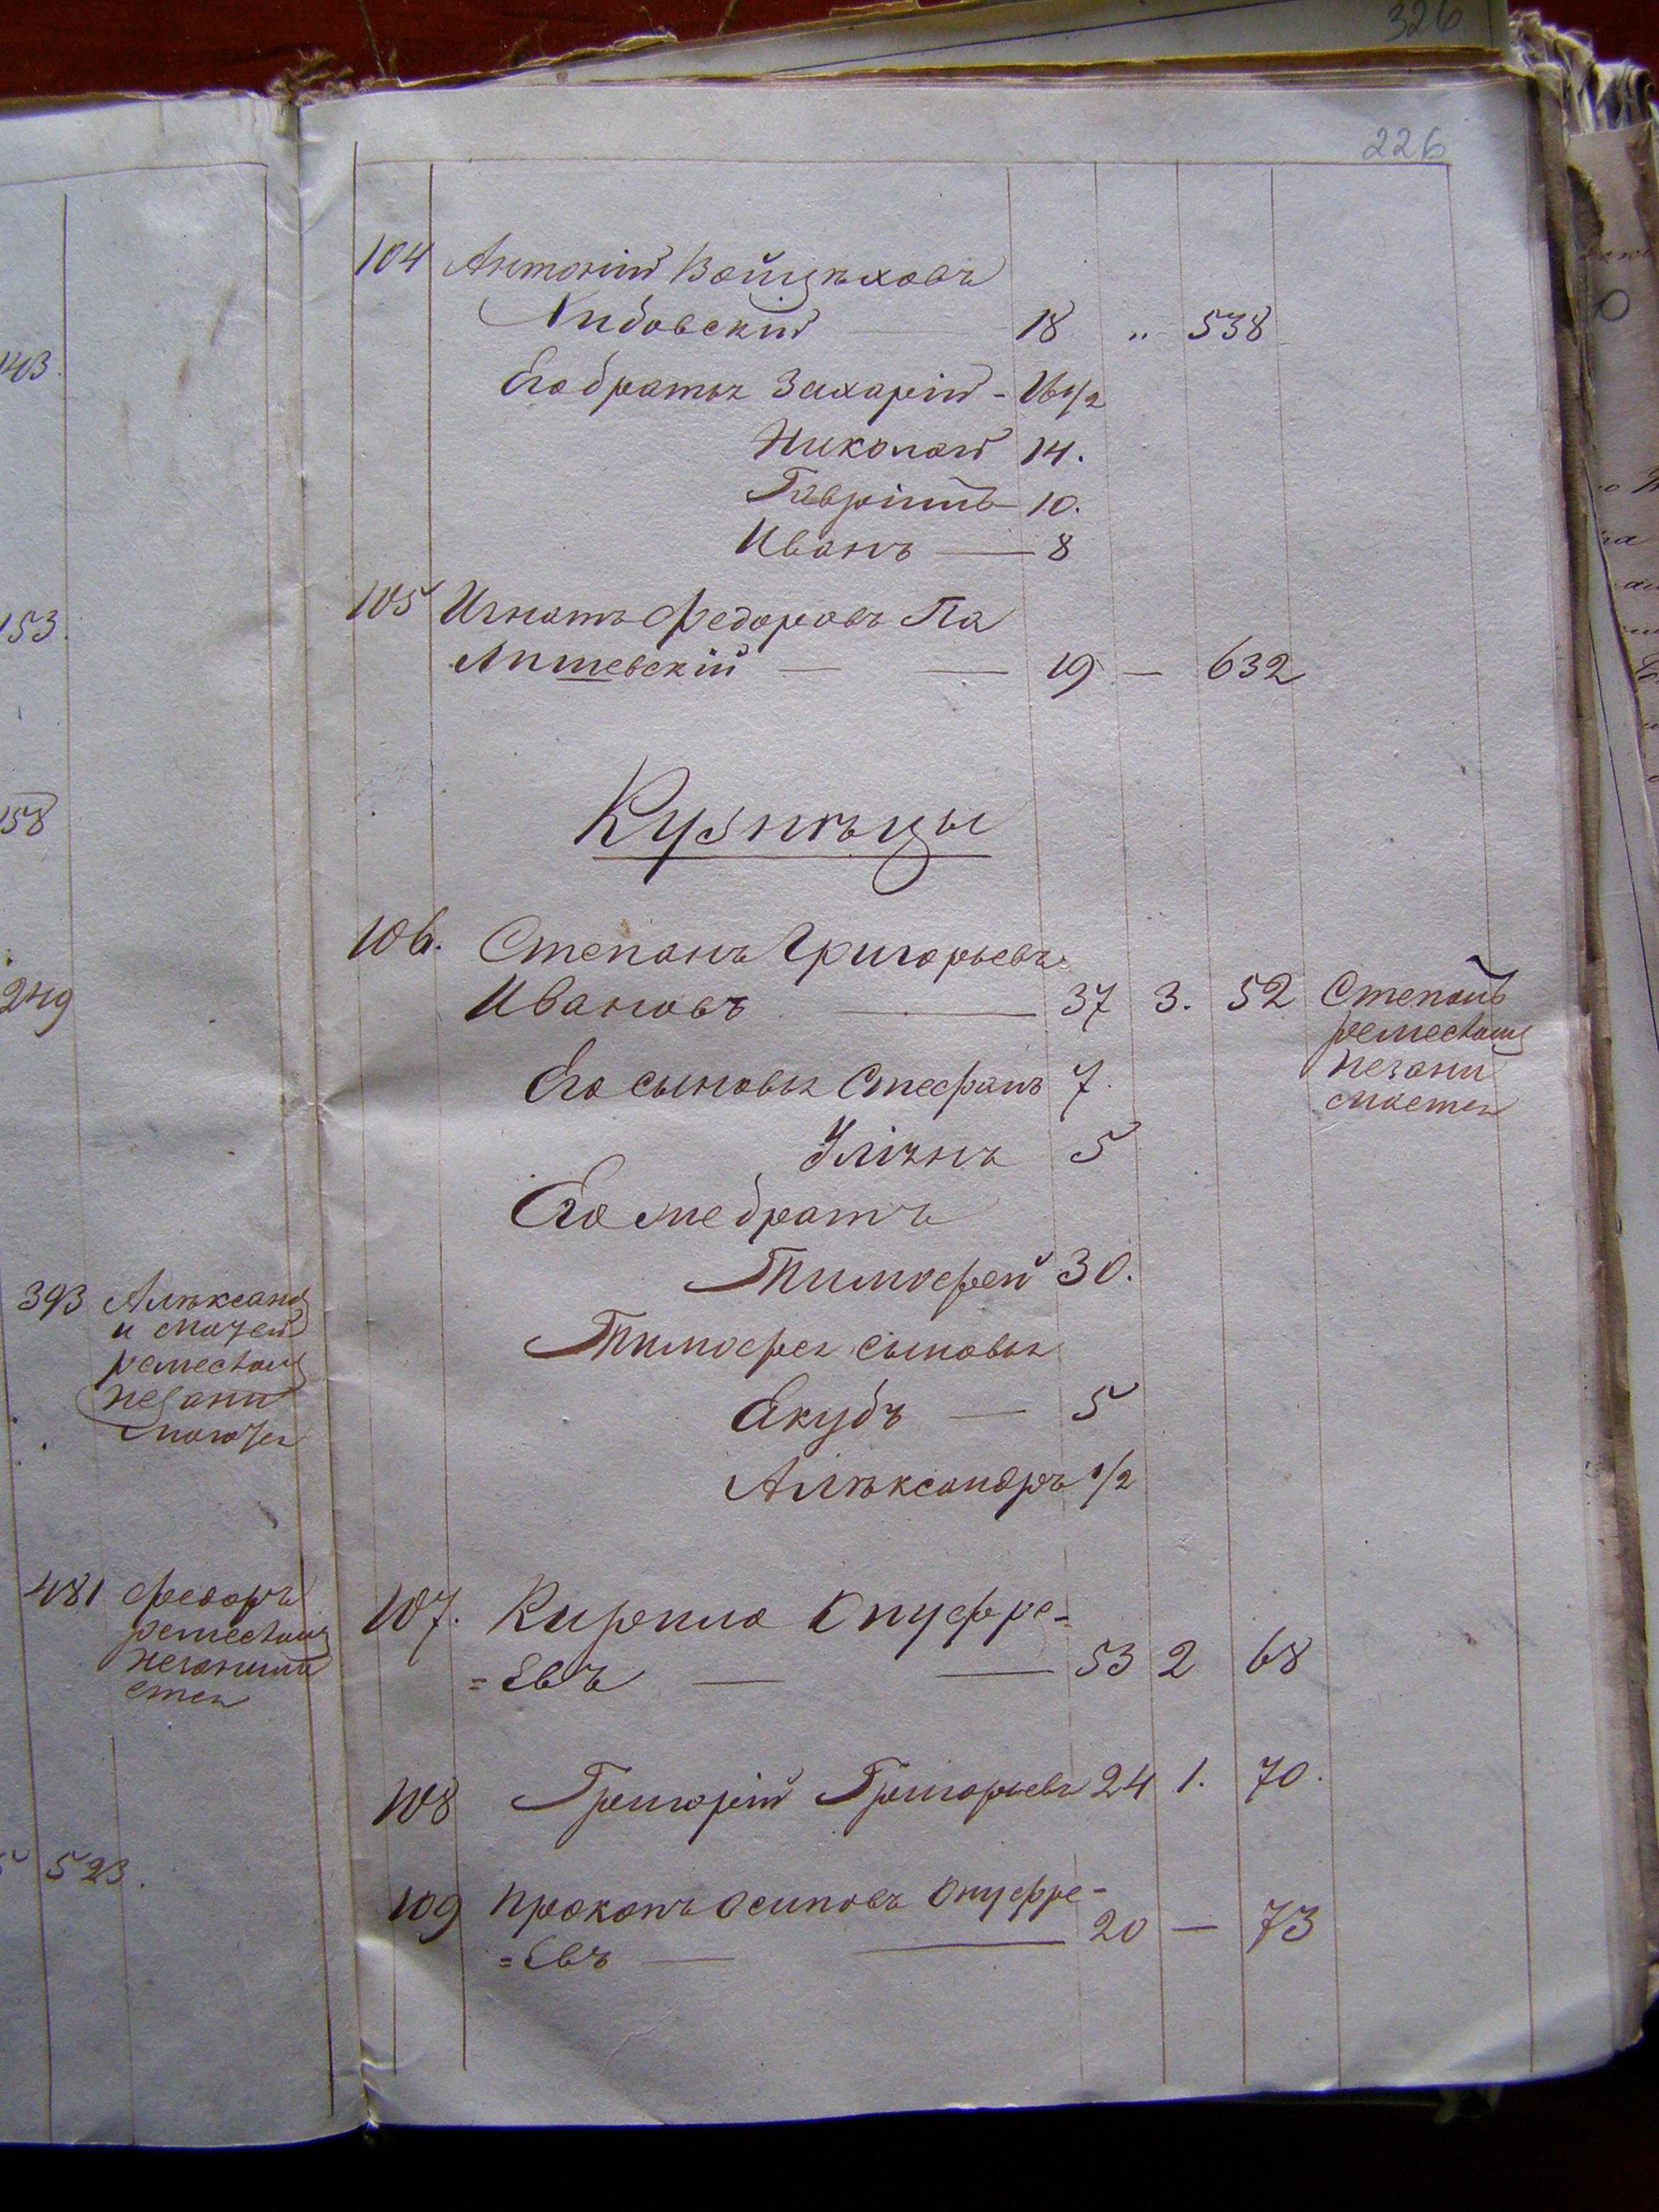 326
226
143.
153.
158
249
393 Алѣксанд
и Мацей
ремесломъ
незани
маютця
481 Федоръ
ремесломъ
незанима
етця
5 523.
104 Антоній Войцѣховъ
Хибовскій 18 „ 538
Его братья Захарій - 16 1/2
Николай 14.
Гавріілъ 10.
Иванъ — 8
105 Игнатъ Федоровъ Па
Липшевскій — — 19 — 632
Кузнѣцы
106. Степанъ Григорьевъ
Ивановъ — 37 3. 52 Степанъ
ремесломъ
незани
мается
Его сыновья Стефанъ 7.
Уліянъ 5
Его же братъ
Тимофей 30.
Тимофея сыновья
Якубъ — 5
Алѣксандръ 1/2
107. Кирила Онуфре-
=евъ — — 53 2 68
108 Григорій Григорьевъ 24 1. 70.
109 Прокопъ Осиповъ Онуфре-
=евъ — — 20 — 73